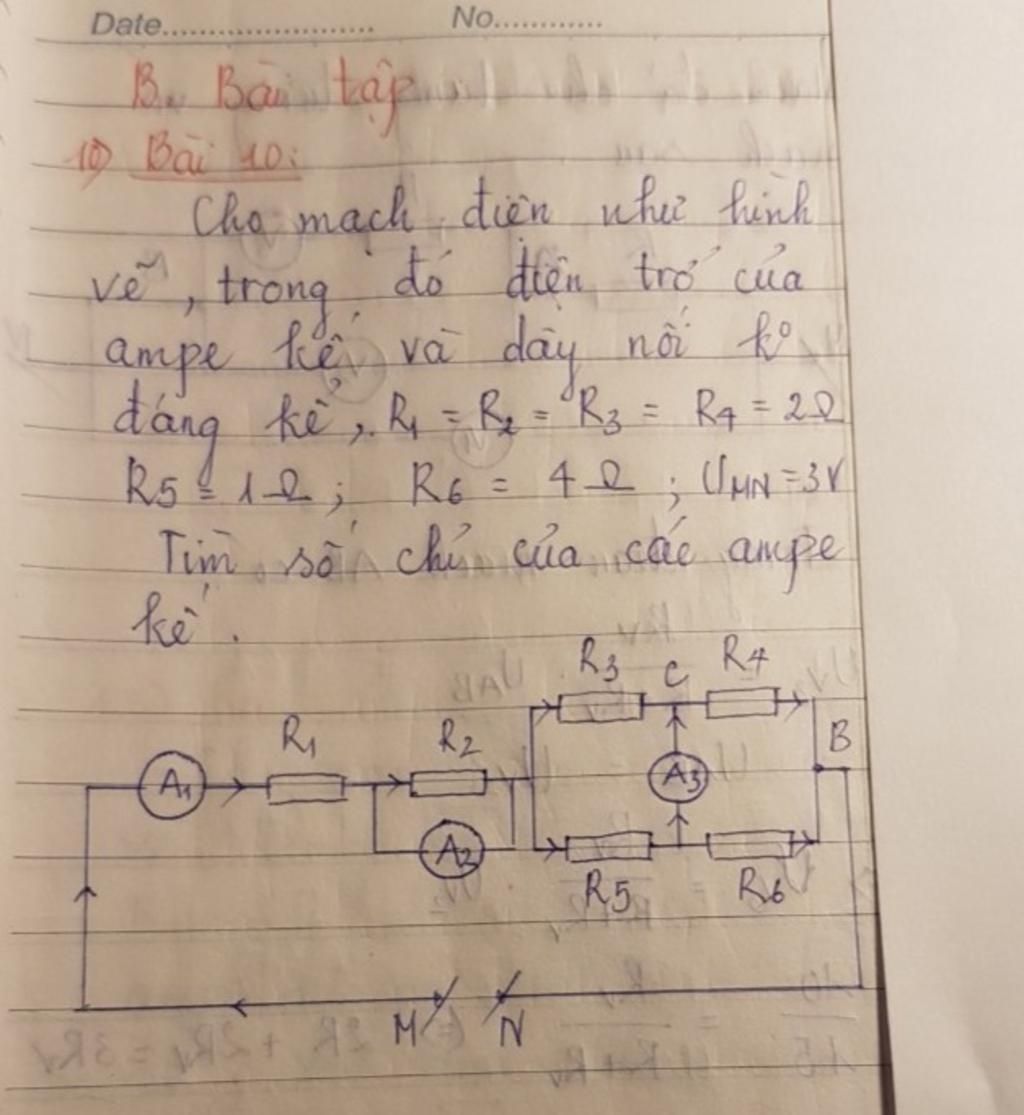 Date...................... No............
B. Bài tập
10) Bài 10:
Cho mạch điện như hình
vẽ, trong đó điện trở của
ampe kế và dây nối ko
đáng kể, R1 = R2 = R3 = R4 = 2Ω
R5 = 1Ω; R6 = 4Ω; UMN = 3V
Tìm số chỉ của các ampe
kế.
R3 C R4
R1 R2 B
A1 A3
A2
R5 R6
M N